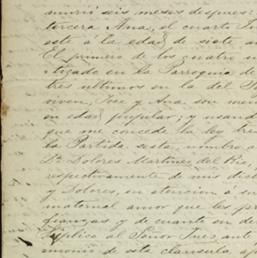 murió seis meses despues:
tercera Ana, el cuarto
este á la edad de siete
El primero de los cuatro
tizado en la Parroquia de
tres ultimos en la del
viven, José y Ana son
en edad pupilar; y usando
que me concede la ley
la Partida sesta, nombro
Dª Dolores Martinez del Rio,
respectivamente de mis
y Dolores, en atencion á
maternal amor que les
fianzas, y de cuanta en de
suplico al Señor Juez, ante
monio de esta clausula,